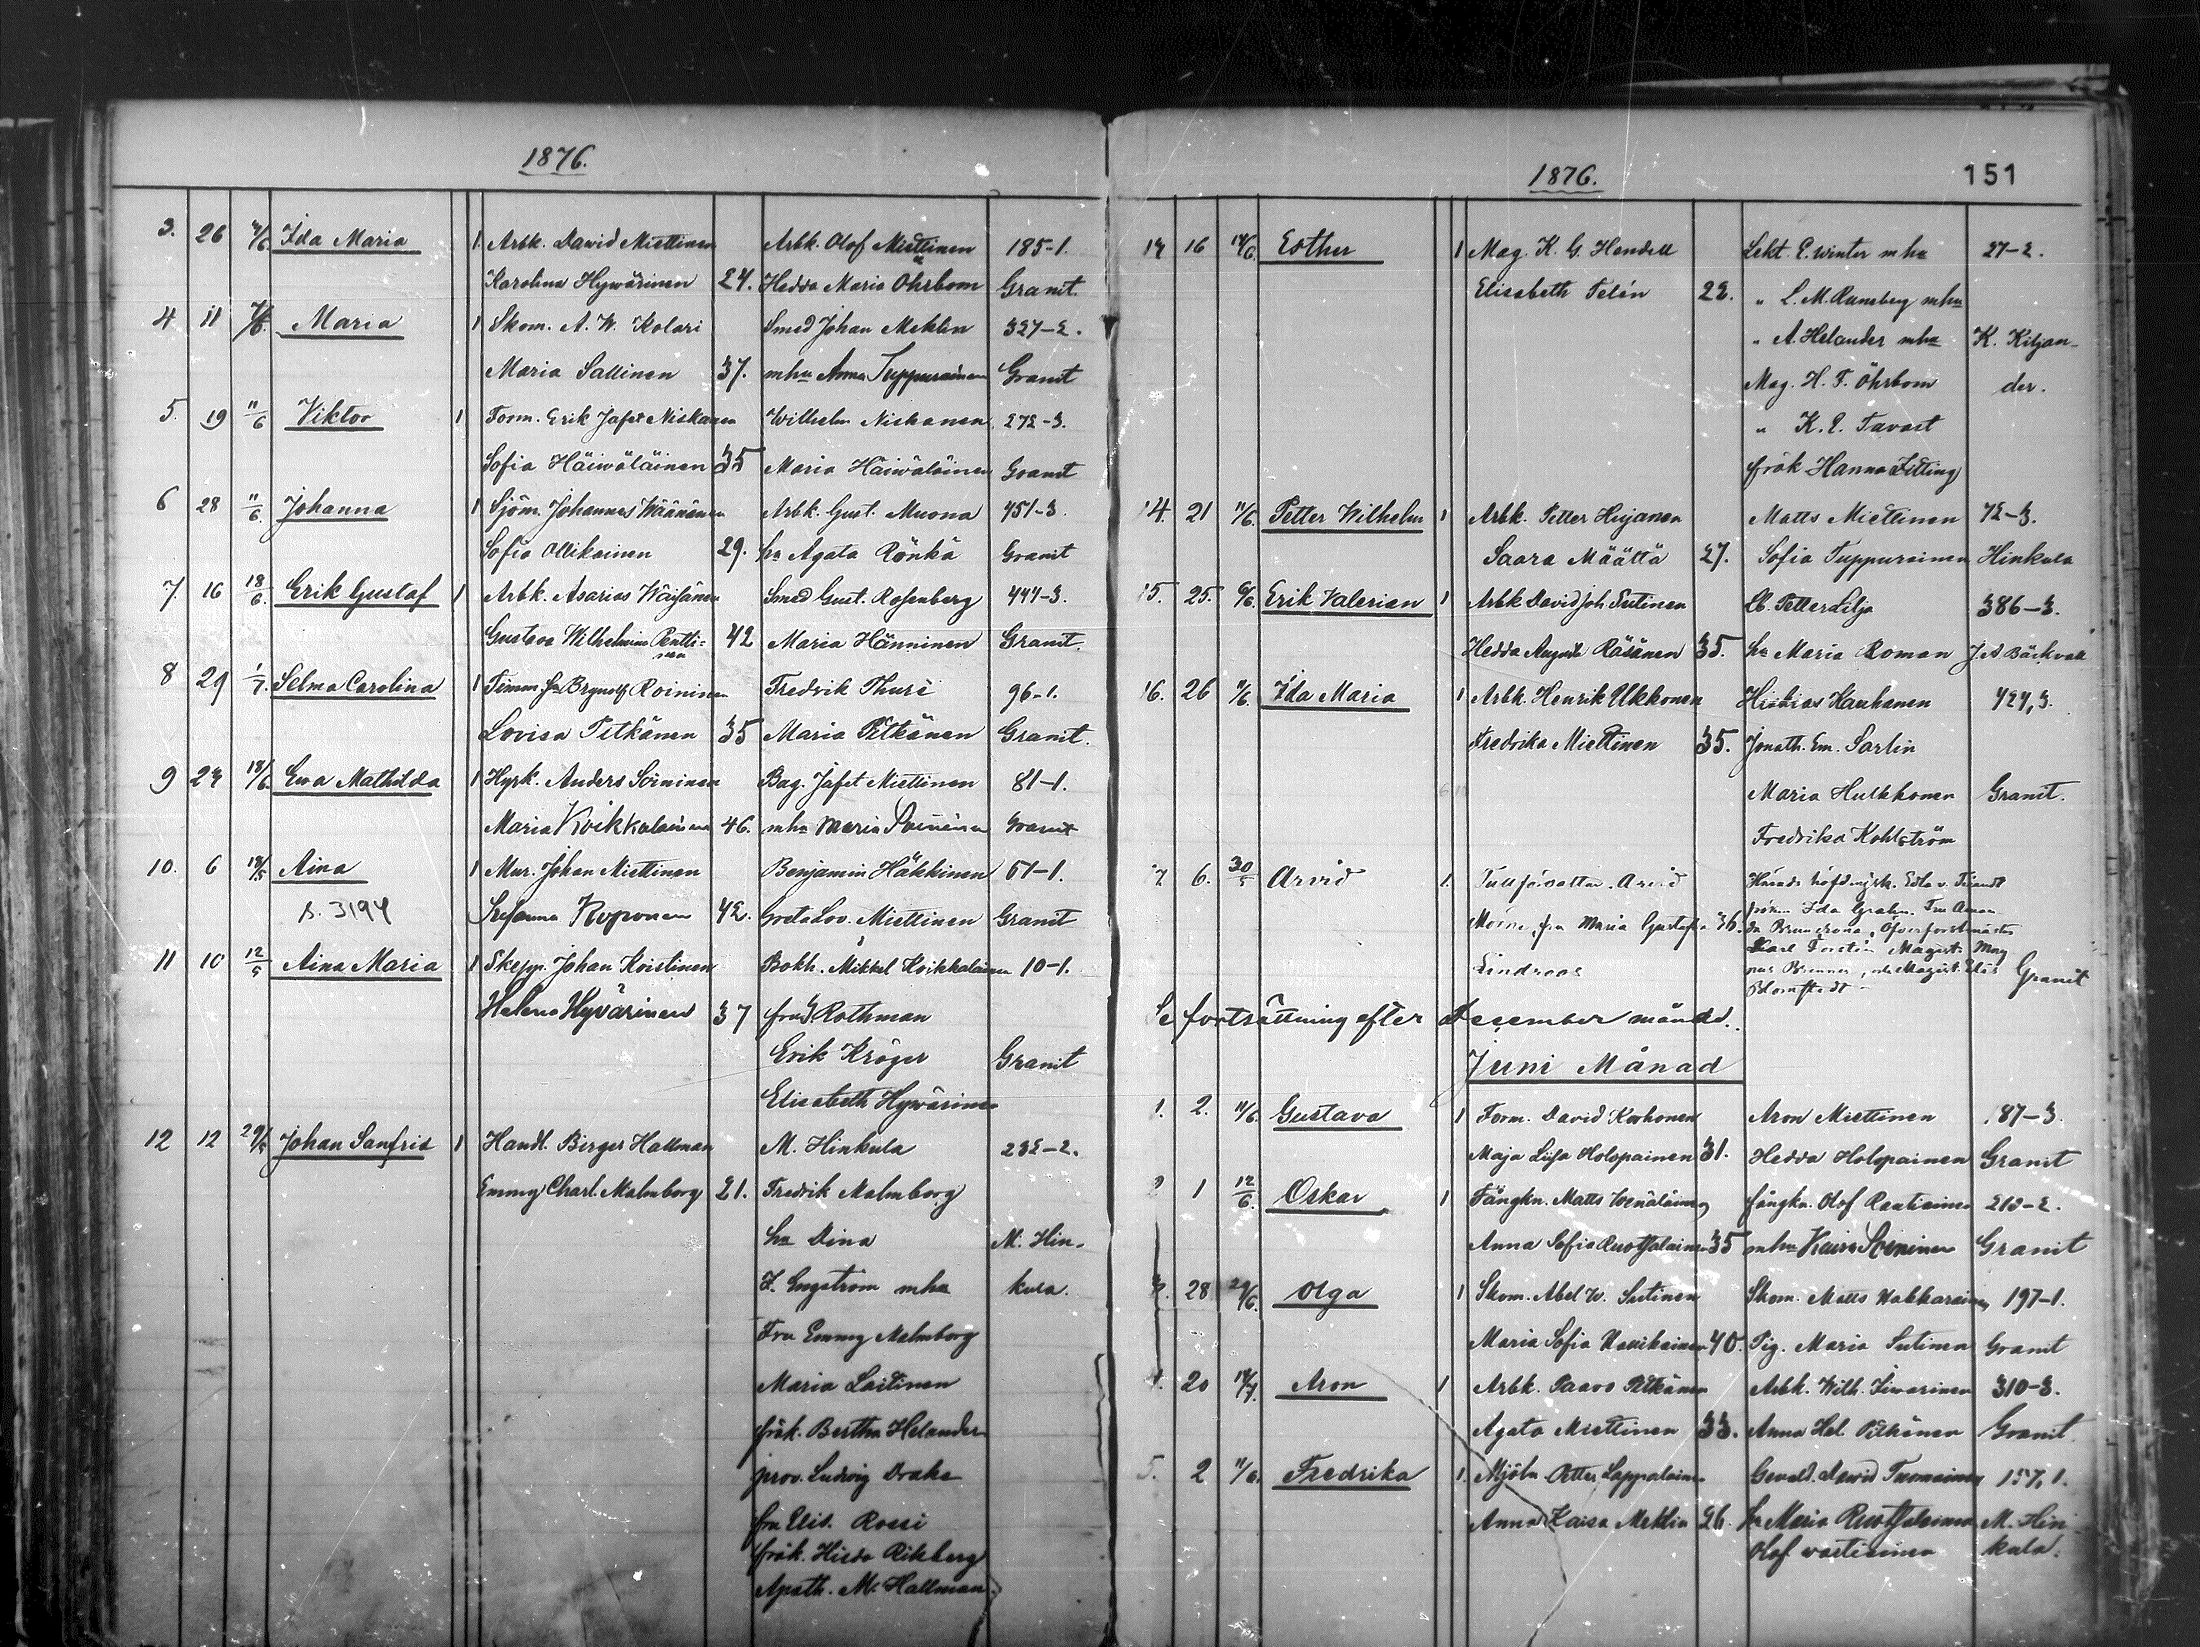 1876.
3. 26 4/6 Ida Maria 1 Arbk. Dawid Miettinen Arbk. Olof Miettinen 185-1.
Karolina Hywärinen 24. Hedda Maria Öhrbom Granit.
4 11 Maria 1 Skom. A. W. Kolari Smed Johan Meklin 327-2.
Maria Sallinen 37. mhu Anna Tuppurainen Granit
5. 19 11/6 Viktor 1 Form. Erik Jafet Niskanen Wilhelm Niskanen 272-3.
Sofia Häiwäläinen 35 Maria Häiwäläinen Granit
6 28 11/6. Johanna 1 Sjöm. Johannes Wäänänen Arbk. Gust. Muona 451-3.
Sofia Ollikainen 29. hu Agata Rönkä Granit
7 16 18/6. Erik Gustaf 1 Arbk. Asarias Wäisänen Smed Gust. Rosenberg 441-3.
Gustava Wilhelmina Pentti- 42 Maria Hänninen Granit.
nen
8 29 1/7. Selma Carolina 1 Timm. Brynolf Roininen Fredrik Thure 96-1.
Lovisa Pitkänen 35 Maria Pitkänen Granit.
9 23 18/6. Ewa Mathilda 1 Hyrk. Anders Soininen Bag. Jafet Miettinen 81-1.
Maria Koikkalainen 46. mhu Maria Soininen Granit
10. 6 Aina 1 Mur. Johan Miettinen Benjamin Häkkinen 51-1.
s. 3194 Susanna Roponen 42. Greta Lov. Miettinen Granit
11 10 12/5 Aina Maria 1 Skepp. Johan Koistinen Bokh. Mikkel Koikkalainen 10-1.
Helena Hyvärinen 37 fru Rothman
Erik Kröger Granit
Elisabeth Hywärinen
12 12 Johan Sanfrid 1 Handl. Birger Hallman M. Hinkula 232-2.
Emmy Charl. Malmborg 21. Fredrik Malmborg
hu Dina M. Hin-
Z. Engström mhu kula.
Fru Emmy Malmborg
Maria Laitinen
frök. Bertha Helander
prov. Ludvig Drake
fru Elis. Rossi
frök. Hilda Rikberg
Apoth. M. Hallman
1876. 151
16 Esther 1 Mag. K. G. Hendell Lekt. E. Winter mhu 27-2.
Elisabeth Telén 22. " L. M. Runeberg mhu
" A. Helander mhu K. Kiljan-
Mag. H. F. Öhrbom der.
" K. E. Tavast
frök Hanna Zitting
14. 21 11/6. Petter Wilhelm 1 Arbk. Petter Hujanen Matts Miettinen 72-3.
Saara Määttä 27. Sofia Tuppurainen Hinkula
15. 25. Erik Valerian 1 Arbk David Joh. Sutinen Petter Lilja 386-3.
Hedda Augusta Räsänen 35. hu Maria Roman Bäckvall
16. 26 11/6. Ida Maria 1 Arbk. Henrik Ukkonen Hiskias Kauhanen 424,3.
Fredrika Miettinen 35. Jonath. Em. Sarlin
Maria Hulkkonen Granit.
Fredrika Kohlström
6. 30/5 Arvid 1. Arvid
fru Maria Gustafva 36.
Lindroos Granit
Blomstedt
Se fortsättning efter December månad.
Juni Månad
1. 2. 11/6. Gustava 1 Form. David Korhonen Aron Miettinen 187-3.
Maja Lisa Holopainen 31. Hedda Holopainen Granit
2 1 12/6. Oskar 1 Fångkn. Matts Wenäläinen fångkn. Olof Rautiainen 213-2.
Anna Sofia Ruotsalainen 35 mhu Kaisa Soininen Granit
3. 28 Olga 1 Skom. Abel W. Sutinen Skom. Matts Kakkarainen 197-1.
Maria Sofia 40. Pig. Maria Sutinen Granit
4. 20 Aron 1 Arbk. Paavo Pitkänen Arbk. Wilh. Tiwarinen 310-3.
Agata Miettinen 33. Anna Hel. Pitkänen Granit.
5. 2 11/6. Fredrika 1. Mjöln. Petter Lappalainen Gevald. Dawid Tuomainen 157,1.
Anna Kaisa Meklin 26. hu Maria Ruotsalainen M. Hin
Olof kula.